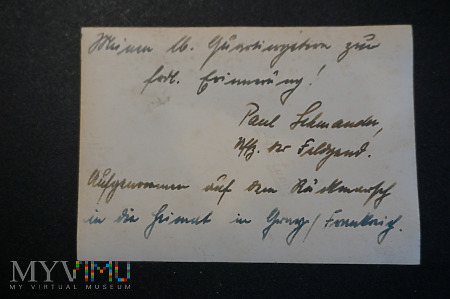 Meinem lb. Quartierpatron zur
frdl. Erinnerung!
Paul Schmander,
Uffz. der Feldgend.
Aufgenommen auf dem Rückmarsch
in die Heimat in Gray/Frankreich.
MYVIMU
MY VIRTUAL MUSEUM